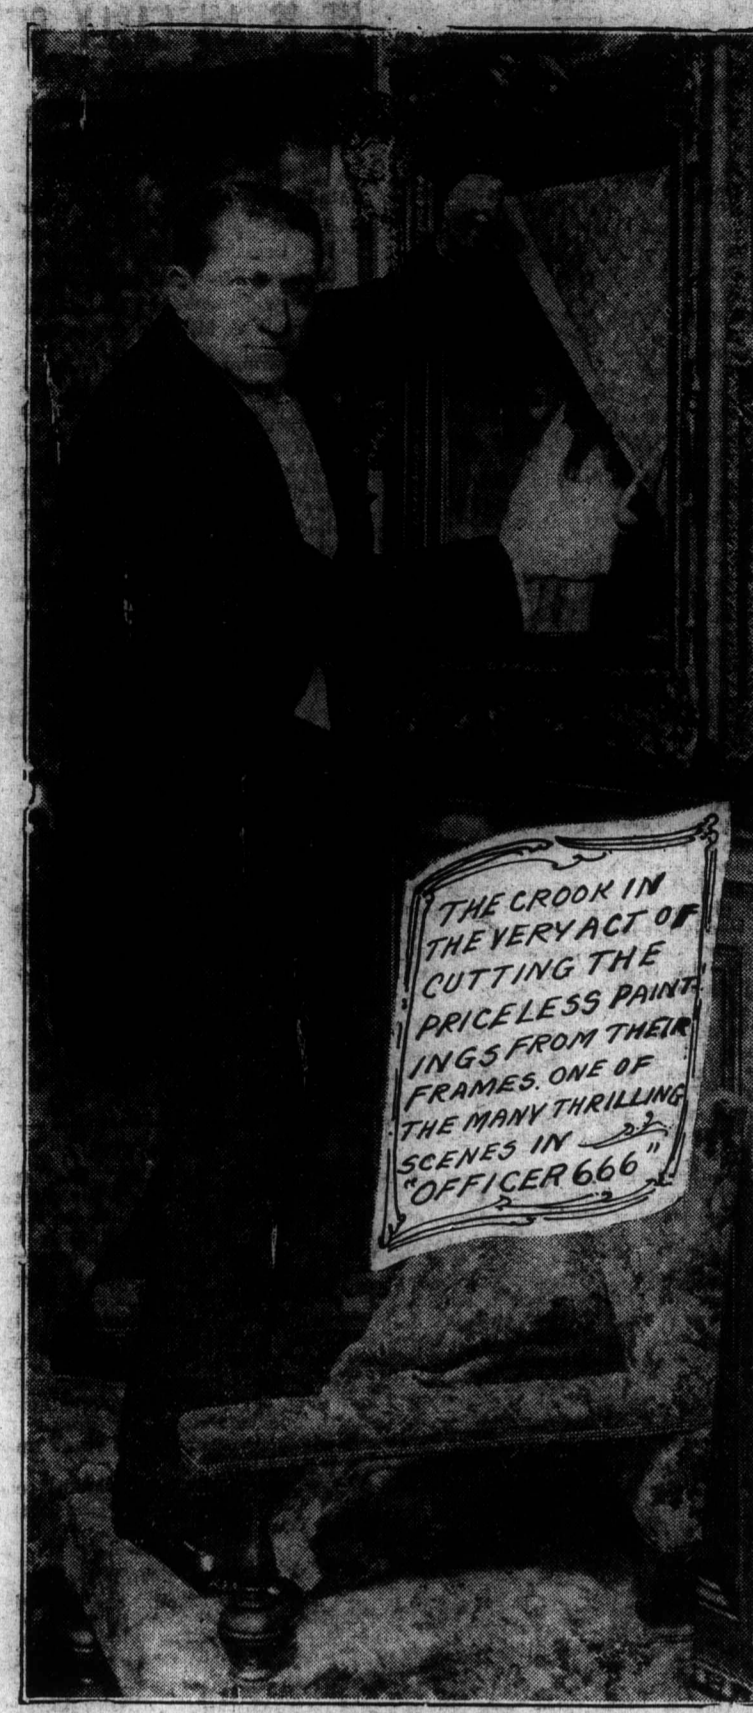 THE CROOK IN
THE VERY ACT OF
CUTTING THE
PRICELESS PAINT-
INGS FROM THEIR
FRAMES. ONE OF
THE MANY THRILLING
SCENES IN
"OFFICER 666"